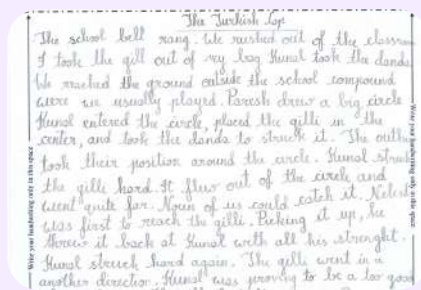 The Turkish Cap
The school bell rang. We rushed out of the classroom
I took the gilli out of my bag Kunal took the danda
We reached the ground outside the school compound
were we usually played. Paresh drew a big circle
Kunal entered the circle, placed the gilli in the
center, and took the danda to struck it. The others
took their position around the circle. Kunal struck
the gilli hard. It flew out of the circle and
went quite far. Noun of us could catch it.
was first to reach the gilli. Picking it up, he
threw it back at Kunal with all his strenght.
Kunal struck hard again. The gilli went in a
another direction. Kunal was proving to be a too good
Write your handwriting only in this space
Write your handwriting only in this space